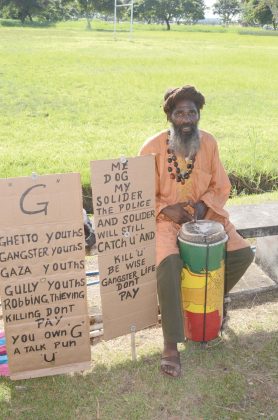 G
GHETTO YOUTHS
GANGSTER YOUTHS
GAZA YOUTHS
GULLY YOUTHS
ROBBING, THIEVING
KILLING DONT
PAY.
YOU OWN G
A TALK PUN
"U"
ME
DOG
MY
SOLIDER
THE POLICE
AND SOLIDER
WILL STILL
CATCH "U" AND
KILL "U"
BE WISE
GANGSTER LIFE
DONT
PAY